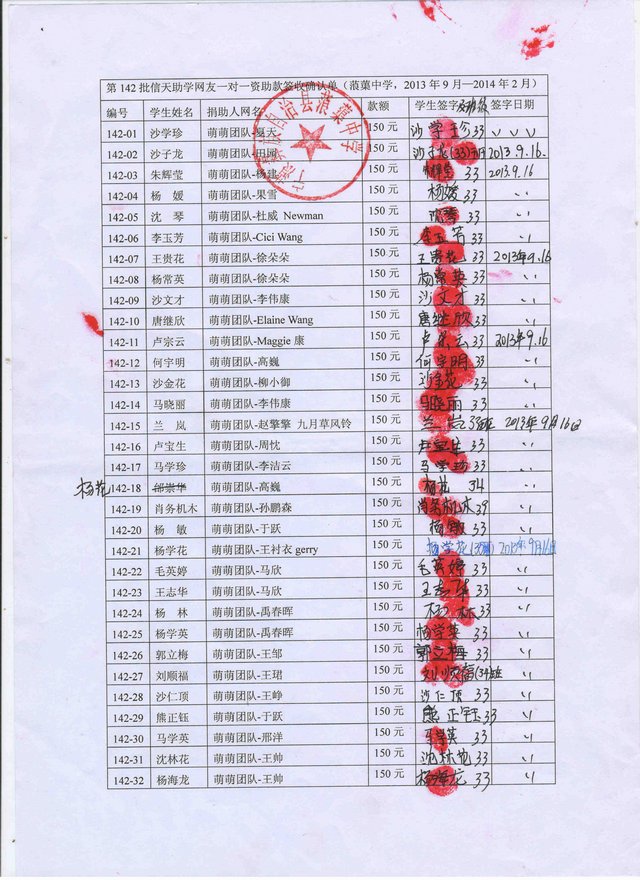 第 142 批信天助学网友一对一资助款签收确认单（蒗蕖中学，2013 年 9 月—2014 年 2 月）
编号 学生姓名 捐助人网名: 款额 学生签字 签字日期
142-01 沙学珍 萌萌团队-夏天 150 元 沙学珍 33 〃
142-02 沙子龙 萌萌团队-田园 150 元 沙子龙(33) 2013.9.16.
142-03 朱辉莹 萌萌团队-杨建 150 元 33 2013.9.16
142-04 杨 媛 萌萌团队-果雪 150 元 杨媛 33 〃
142-05 沈 琴 萌萌团队-杜威 Newman 150 元 沈琴 33 〃
142-06 李玉芳 萌萌团队-Cici Wang 150 元 李玉芳 33 〃
142-07 王贵花 萌萌团队-徐朵朵 150 元 王贵花 33 2013年9.16
142-08 杨常英 萌萌团队-徐朵朵 150 元 杨常英 33 〃
142-09 沙文才 萌萌团队-李伟康 150 元 沙文才 33 〃
142-10 唐继欣 萌萌团队-Elaine Wang 150 元 唐继欣 33 〃
142-11 卢宗云 萌萌团队-Maggie 康 150 元 卢宗云 33 2013年9.16
142-12 何宇明 萌萌团队-高巍 150 元 何宇明 33 〃
142-13 沙金花 萌萌团队-柳小御 150 元 沙金花 33 〃
142-14 马晓丽 萌萌团队-李伟康 150 元 马晓丽 33 〃
142-15 兰 岚 萌萌团队-赵擎擎 九月草风铃 150 元 兰岚 33班 2013年9月16日
142-16 卢宝生 萌萌团队-周忱 150 元 卢宝生 33 〃
142-17 马学珍 萌萌团队-李洁云 150 元 马学珍 33 〃
杨花 142-18 邰崇华 萌萌团队-高巍 150 元 杨花 34 〃
142-19 肖务机木 萌萌团队-孙鹏森 150 元 肖务机木 39 〃
142-20 杨 敏 萌萌团队-于跃 150 元 杨敏 33 〃
142-21 杨学花 萌萌团队-王衬衣 gerry 150 元 杨学花(33班) 2013年9月16日
142-22 毛英婷 萌萌团队-马欣 150 元 毛英婷 33 〃
142-23 王志华 萌萌团队-马欣 150 元 王志华 33 〃
142-24 杨 林 萌萌团队-禹春晖 150 元 杨林 33 〃
142-25 杨学英 萌萌团队-禹春晖 150 元 杨学英 33 〃
142-26 郭立梅 萌萌团队-王邹 150 元 郭立梅 33 〃
142-27 刘顺福 萌萌团队-王珺 150 元 刘顺福(34)班 〃
142-28 沙仁顶 萌萌团队-王峥 150 元 沙仁顶 33 〃
142-29 熊正钰 萌萌团队-于跃 150 元 熊正钰 33 〃
142-30 马学英 萌萌团队-邢洋 150 元 马学英 33 〃
142-31 沈林花 萌萌团队-王帅 150 元 沈林花 33 〃
142-32 杨海龙 萌萌团队-王帅 150 元 杨海龙 33 〃